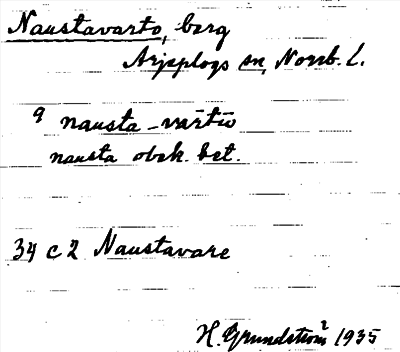 Naustavarto, berg
Arjeplogs sn, Norrb. l.
q nausta-vārtūo
nausta obek. bet.
34 c 2 Naustavare
H. Grundström 1935